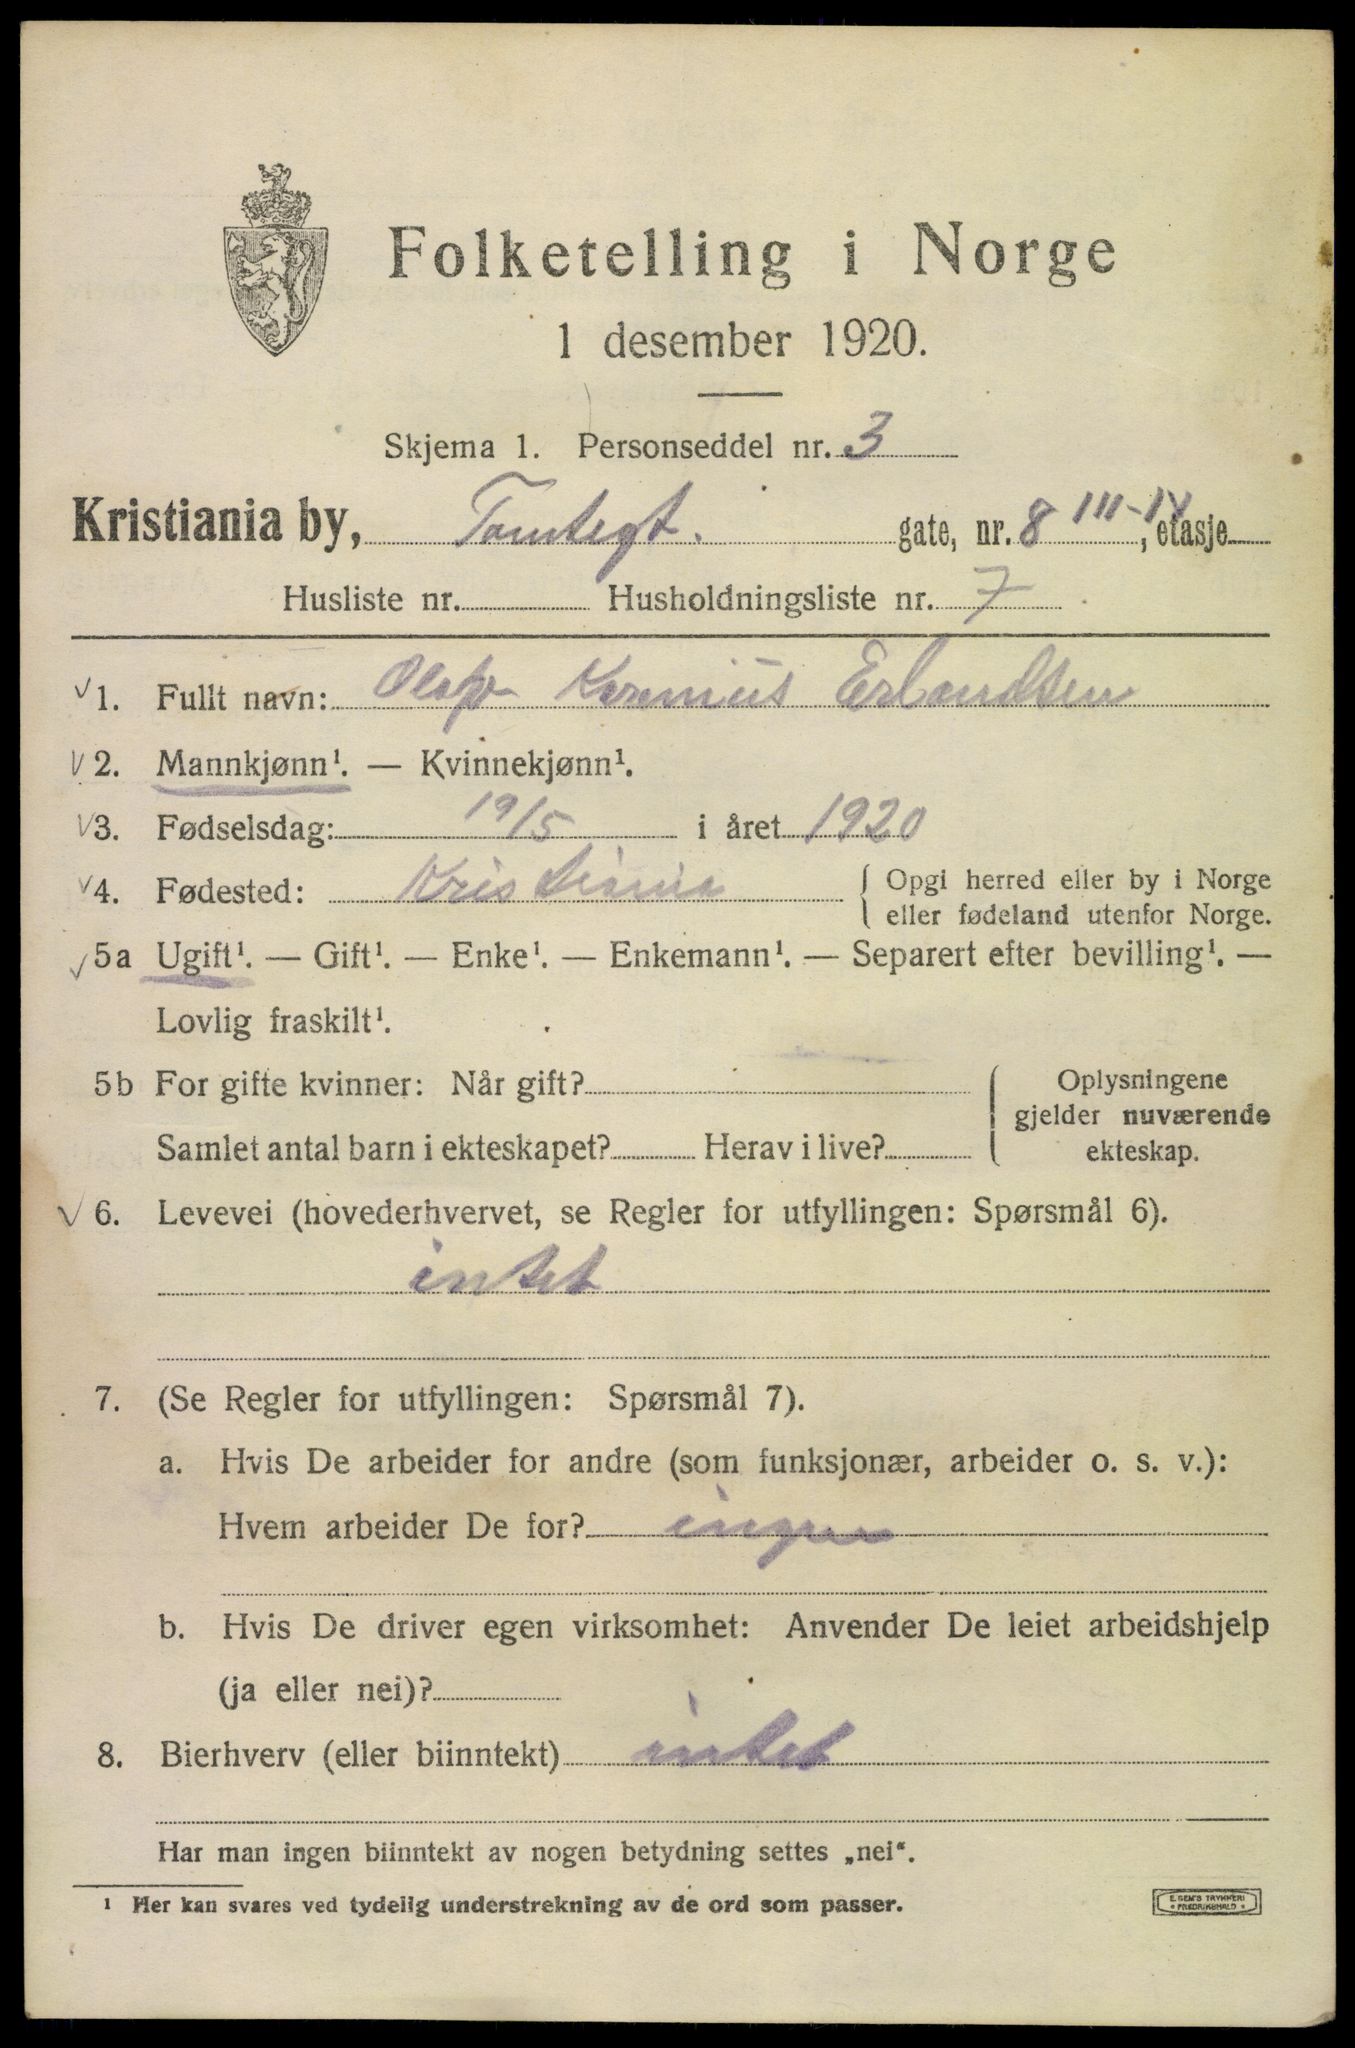 Folketelling i Norge
1 desember 1920.
Skjema 1. Personseddel nr. 3
Kristiania by, Tomtegt. gate, nr. 8 III-IV, etasje
Husliste nr. Husholdningsliste nr. 7
√ 1. Fullt navn: Olaf Erlandsen
√ 2. Mannkjønn¹. — Kvinnekjønn¹.
√ 3. Fødselsdag: 19/5 i året 1920
√ 4. Fødested: Kristiania { Opgi herred eller by i Norge
eller fødeland utenfor Norge.
√ 5a Ugift¹. — Gift¹. — Enke¹. — Enkemann¹. — Separert efter bevilling¹. —
Lovlig fraskilt¹.
5b For gifte kvinner: Når gift? { Oplysningene
gjelder nuværende
Samlet antal barn i ekteskapet? Herav i live? ekteskap.
√ 6. Levevei (hovederhvervet, se Regler for utfyllingen: Spørsmål 6).
intet
7. (Se Regler for utfyllingen: Spørsmål 7).
a. Hvis De arbeider for andre (som funksjonær, arbeider o. s. v.):
Hvem arbeider De for? ingen
b. Hvis De driver egen virksomhet: Anvender De leiet arbeidshjelp
(ja eller nei)?
8. Bierhverv (eller biinntekt) intet
Har man ingen biinntekt av nogen betydning settes „nei“.
¹ Her kan svares ved tydelig understrekning av de ord som passer.
E. SEM'S TRYKKERI
FREDRIKSHALD